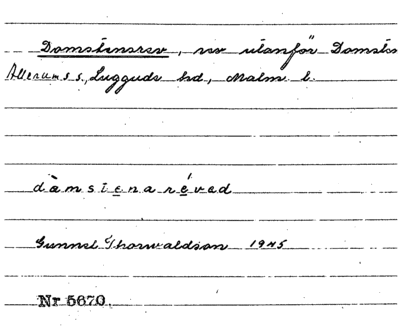 Domstensrev, rev utanför Domsten
Allerums s., Luggude hd, Malm. l.
dàmstenarévad
Gunnel Thorwaldson 1945
Nr 5670